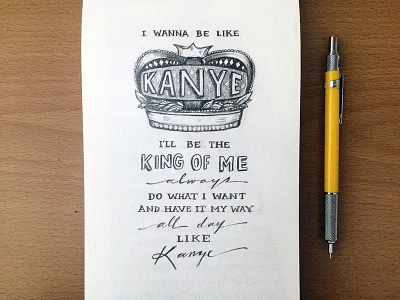 I WANNA BE LIKE
KANYE
I'LL BE THE
KING OF ME
always
DO WHAT I WANT
AND HAVE IT MY WAY
all day
LIKE
Kanye